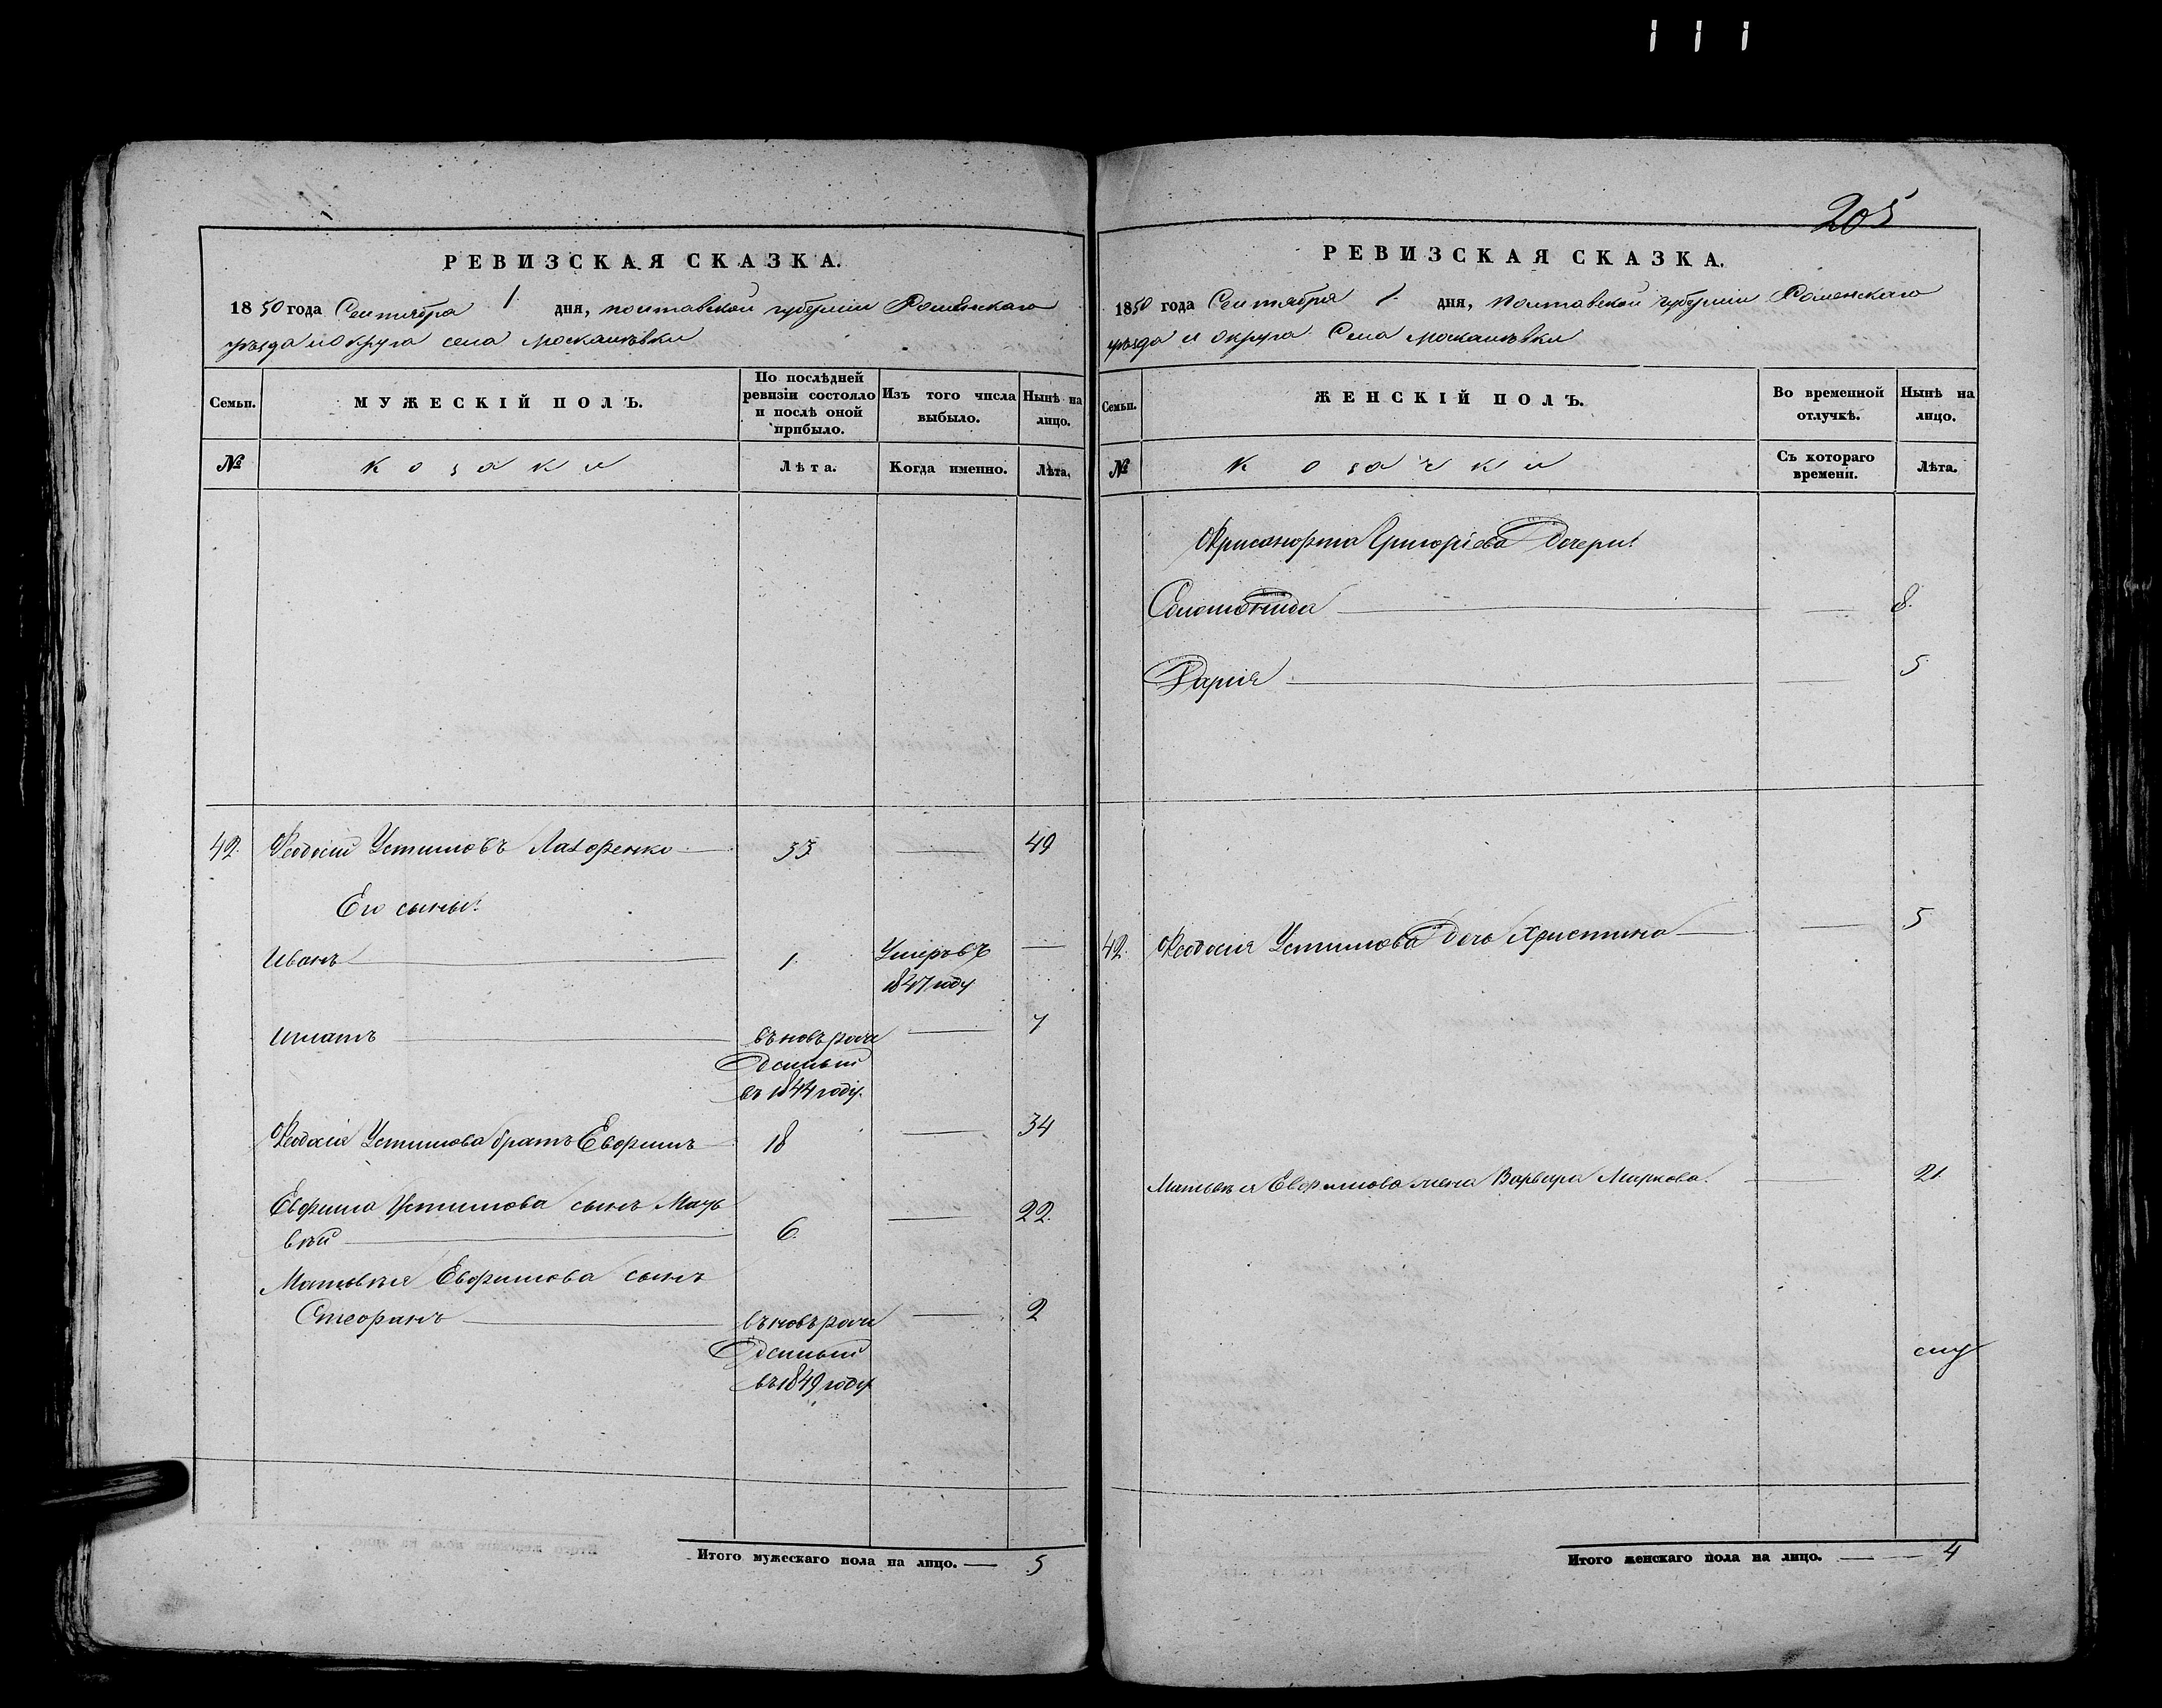 205
РЕВИЗСКАЯ СКАЗКА.
1850 года Сентября 1. дня, полтавской губернии Роменскаго
уѣзда и округа села москалѣвки
Семьи.
МУЖЕСКІЙ ПОЛЪ.
По послѣдней ревизіи состояло и послѣ оной прибыло.
Изъ того числа выбыло.
Нынѣ на лицо.
№
козаки
Лѣта.
Когда именно.
Лѣта.
42. Феодосій Устимовъ Лазоренко 33 49
Его сыны:
Иванъ 1. Умеръ въ
1847 году
Игнатъ въновь рож 7
денный
въ 1844 году.
Феодосія Устимова братъ Евфимъ 18 34
Евфима Устимова сынъ Мать
вѣй 6. 22.
Матвѣя Евфимова сынъ
Стефанъ въновь рож 2
денный
въ 1849 году
Итого мужескаго пола на лицо. 5
РЕВИЗСКАЯ СКАЗКА.
1850 года Сентября 1. дня, Полтавской губернии Роменскаго
уѣзда и округа Села москалѣвки
Семьи.
ЖЕНСКІЙ ПОЛЪ.
Во временной отлучкѣ.
Нынѣ на лицо.
№
козачки
Съ котораго времени.
Лѣта.
Григоріева Дочери:
Соломонида 8.
Дарія 5
42. Феодосія Устимова Дочь Христина 5
Матвѣя Евфимова жена Варвара Маркова. 21
Итого женскаго пола на лицо. 4